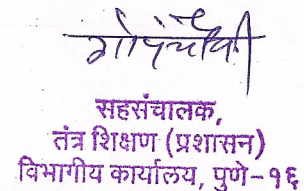 सहसंचालक,
तंत्र शिक्षण (प्रशासन)
विभागीय कार्यालय, पुणे-१६